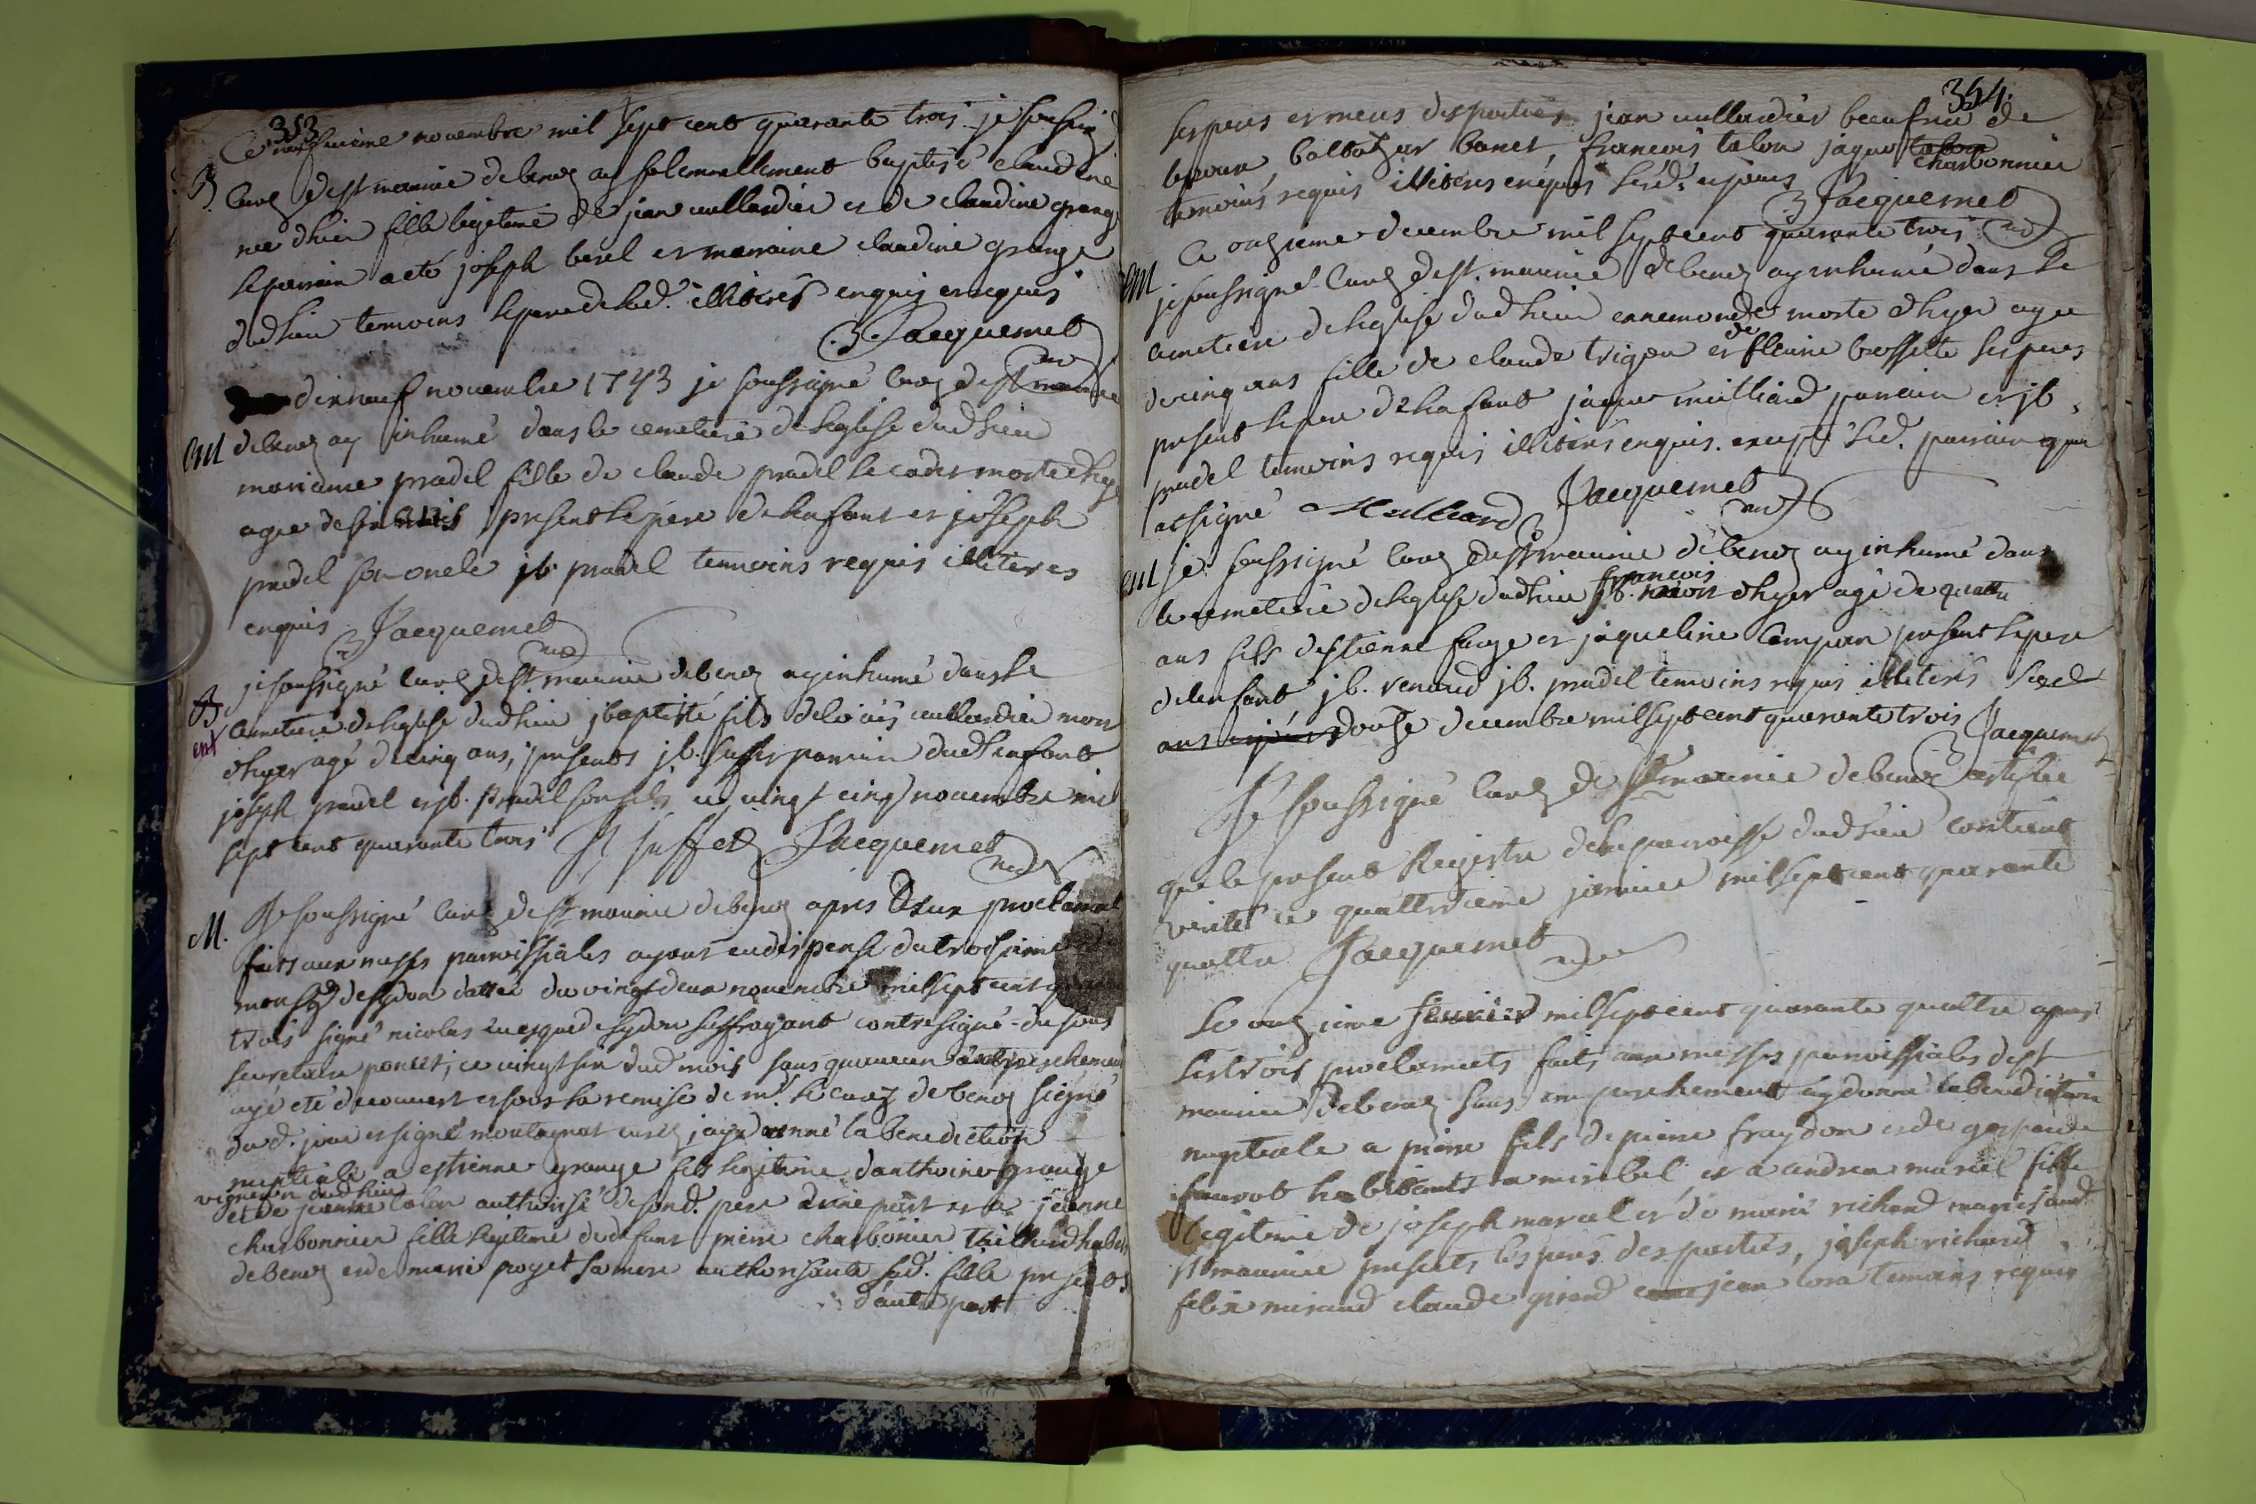 353
Ce neufvieme novembre mil sept cent quarante trois je soussigné
B. curé de st maurice de benoz ay solennellement baptisé claudine
née d'hier fille legitime de jean cullardier et de claudine grange
le parrain a eté joseph berel et marraine claudine grange
dud lieu temoins le pere de lad. illiterés enquis et requis
Jacquemet
curé
dixneuf novembre 1743 je soussigné curé de st maurice
ent de benoz ay inhumé dans le cemetiere de l'eglise dud lieu
marianne pradel fille de claude pradel le cadet morte d'hyer
agée de six presents le pere de l'enfant et joseph
pradel son oncle jb. pradel temoins requis illiteres
enquis Jacquemet
curé
je soussigné curé de st maurice de benoz ay inhumé dans le
B ent cemetiere de l'eglise dud lieu jbaptiste fils de loüis cullardier mort
d'hyer agé de cinq ans, presents jb. suffet parrain dud enfant
joseph pradel et jb. pradel son fils ce vingt cinq novembre mil
sept cent quarante trois JB suffet Jacquemet
curé
M. Je soussigné curé de st maurice de benoz apres deux proclamat
faits aux messes parroissiales ayant eu dispense du troisieme
monsgr de sydon dattée du vingt deux novembre mil sept cent
trois signé nicolas evesque de sydon suffragant contresigné
secretaire poncet; ce vingt six dud mois sans qu'aucun empeschement
aye eté decouvert et sous la remise de mr. le curé de benoz signé
dud. jour et signé montagnat curé j'ay donné la benediction
nuptiale a estienne grange fils legitime d'anthoine grange
vigneron dud lieu
et de jeanne talon authorisé de sond. pere d'une part et a jeanne
charbonnier fille legitime de defunt pierre charbonier
de benoz et de marie poyet sa mere authorisante sad. fille presents
d'autre part
354.
les peres et meres des parties jean cullardier beaufrere de
l'epoux, baltazar banet, françois talon jaque talon charbonnier
temoins requis illiterés enquis lesd. et jours
Jacquemet
curé
Ce onzieme decembre mil sept cent quarante trois
ent je soussigné curé de st. maurice de benoz ay inhumé dans le
cemetiere de l'eglise dud lieu ennemonde morte d'hyer agée
de cinq ans fille de claude trigon et de fleurie brossette ses peres
present le pere de l'enfant jaque milliard parrain et jb.
pradel temoins requis illiterés enquis. excepté led. parrain qui
a signé Milliard Jacquemet
curé
ent je soussigné curé de st maurice de benoz ay inhumé dans
le cemetiere de l'eglise dud lieu jb. françois mort d'hyer agé de quattre
ans fils d'estienne farge et jaqueline compan present le pere
de l'enfant, jb. renaud jb. pradel temoins requis illiterés
ans et jours douze decembre mil sept cent quarante trois Jacquemet
Je soussigné curé de st maurice de benoz certifie
que le present Registre de la parroisse dud lieu contient
verité ce quattrieme janvier mil sept cent quarante
quattre Jacquemet
curé
Le onzieme fevrier mil sept cent quarante quattre apres
les trois proclamats faits aux messes parroissiales de st
maurice de benoz sans empeschement ay donné la benediction
nuptiale a pierre fils de pierre fraydon et de gasparde
favrot habitants a miribel et a andrea marcel fille
legitime de joseph marcel et de marie richard maries aud.
st maurice presents les peres des parties, joseph richard
felix miraud claude girard jean temoins requis